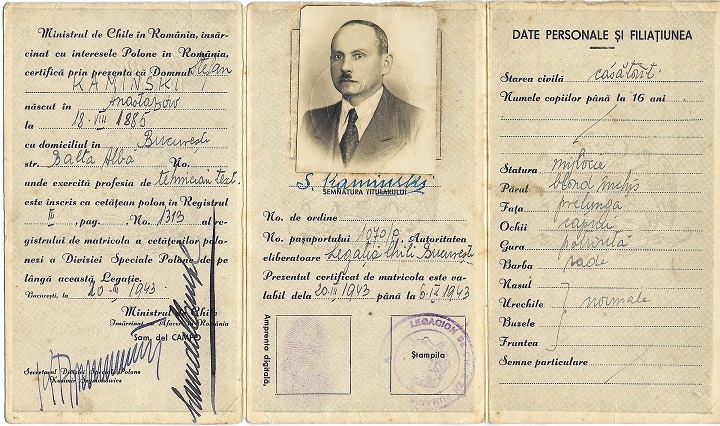 Ministrul de Chile în România, însăr-
cinat cu interesele Polone în România,
certifică prin prezenta că Domnul Stefan
KAMINSKI
născut în Anastazow
la 18-VIII 1885
cu domiciliul in București
str. Balta Alba No.
unde exercită profesia de tehnician text.
este înscris ca cetățean polon în Registrul
III, pag. No. 1313 al re-
gistrului de matricola a cetățenilor polo-
nezi a Diviziei Speciale Polone de pe
lângă această Legație.
București, la 20-III 1943
Ministrul de Chile
Însărcinat cu Afaceri în România
Sam. del CAMPO
Secretarul Diviziei Speciale Polone
S. Kaminski
SEMNATURA TITULARULUI
No. de ordine
No. pașaportului 1070/0 Autoritatea
eliberatoare Legatia Chili București
Prezentul certificat de matricola este va-
labil dela 20-III 1943 până la 6-IX 1943
Amprenta digitală
Ștampila
LEGACION
DATE PERSONALE ȘI FILIAȚIUNEA
Starea civilă căsătorit.
Numele copiilor până la 16 ani
Statura mijlocie
Părul blond inchis
Fața prelungă
Ochii caprui
Gura potrivită
Barba rade
Nasul
Urechile normale
Buzele
Fruntea
Semne particulare